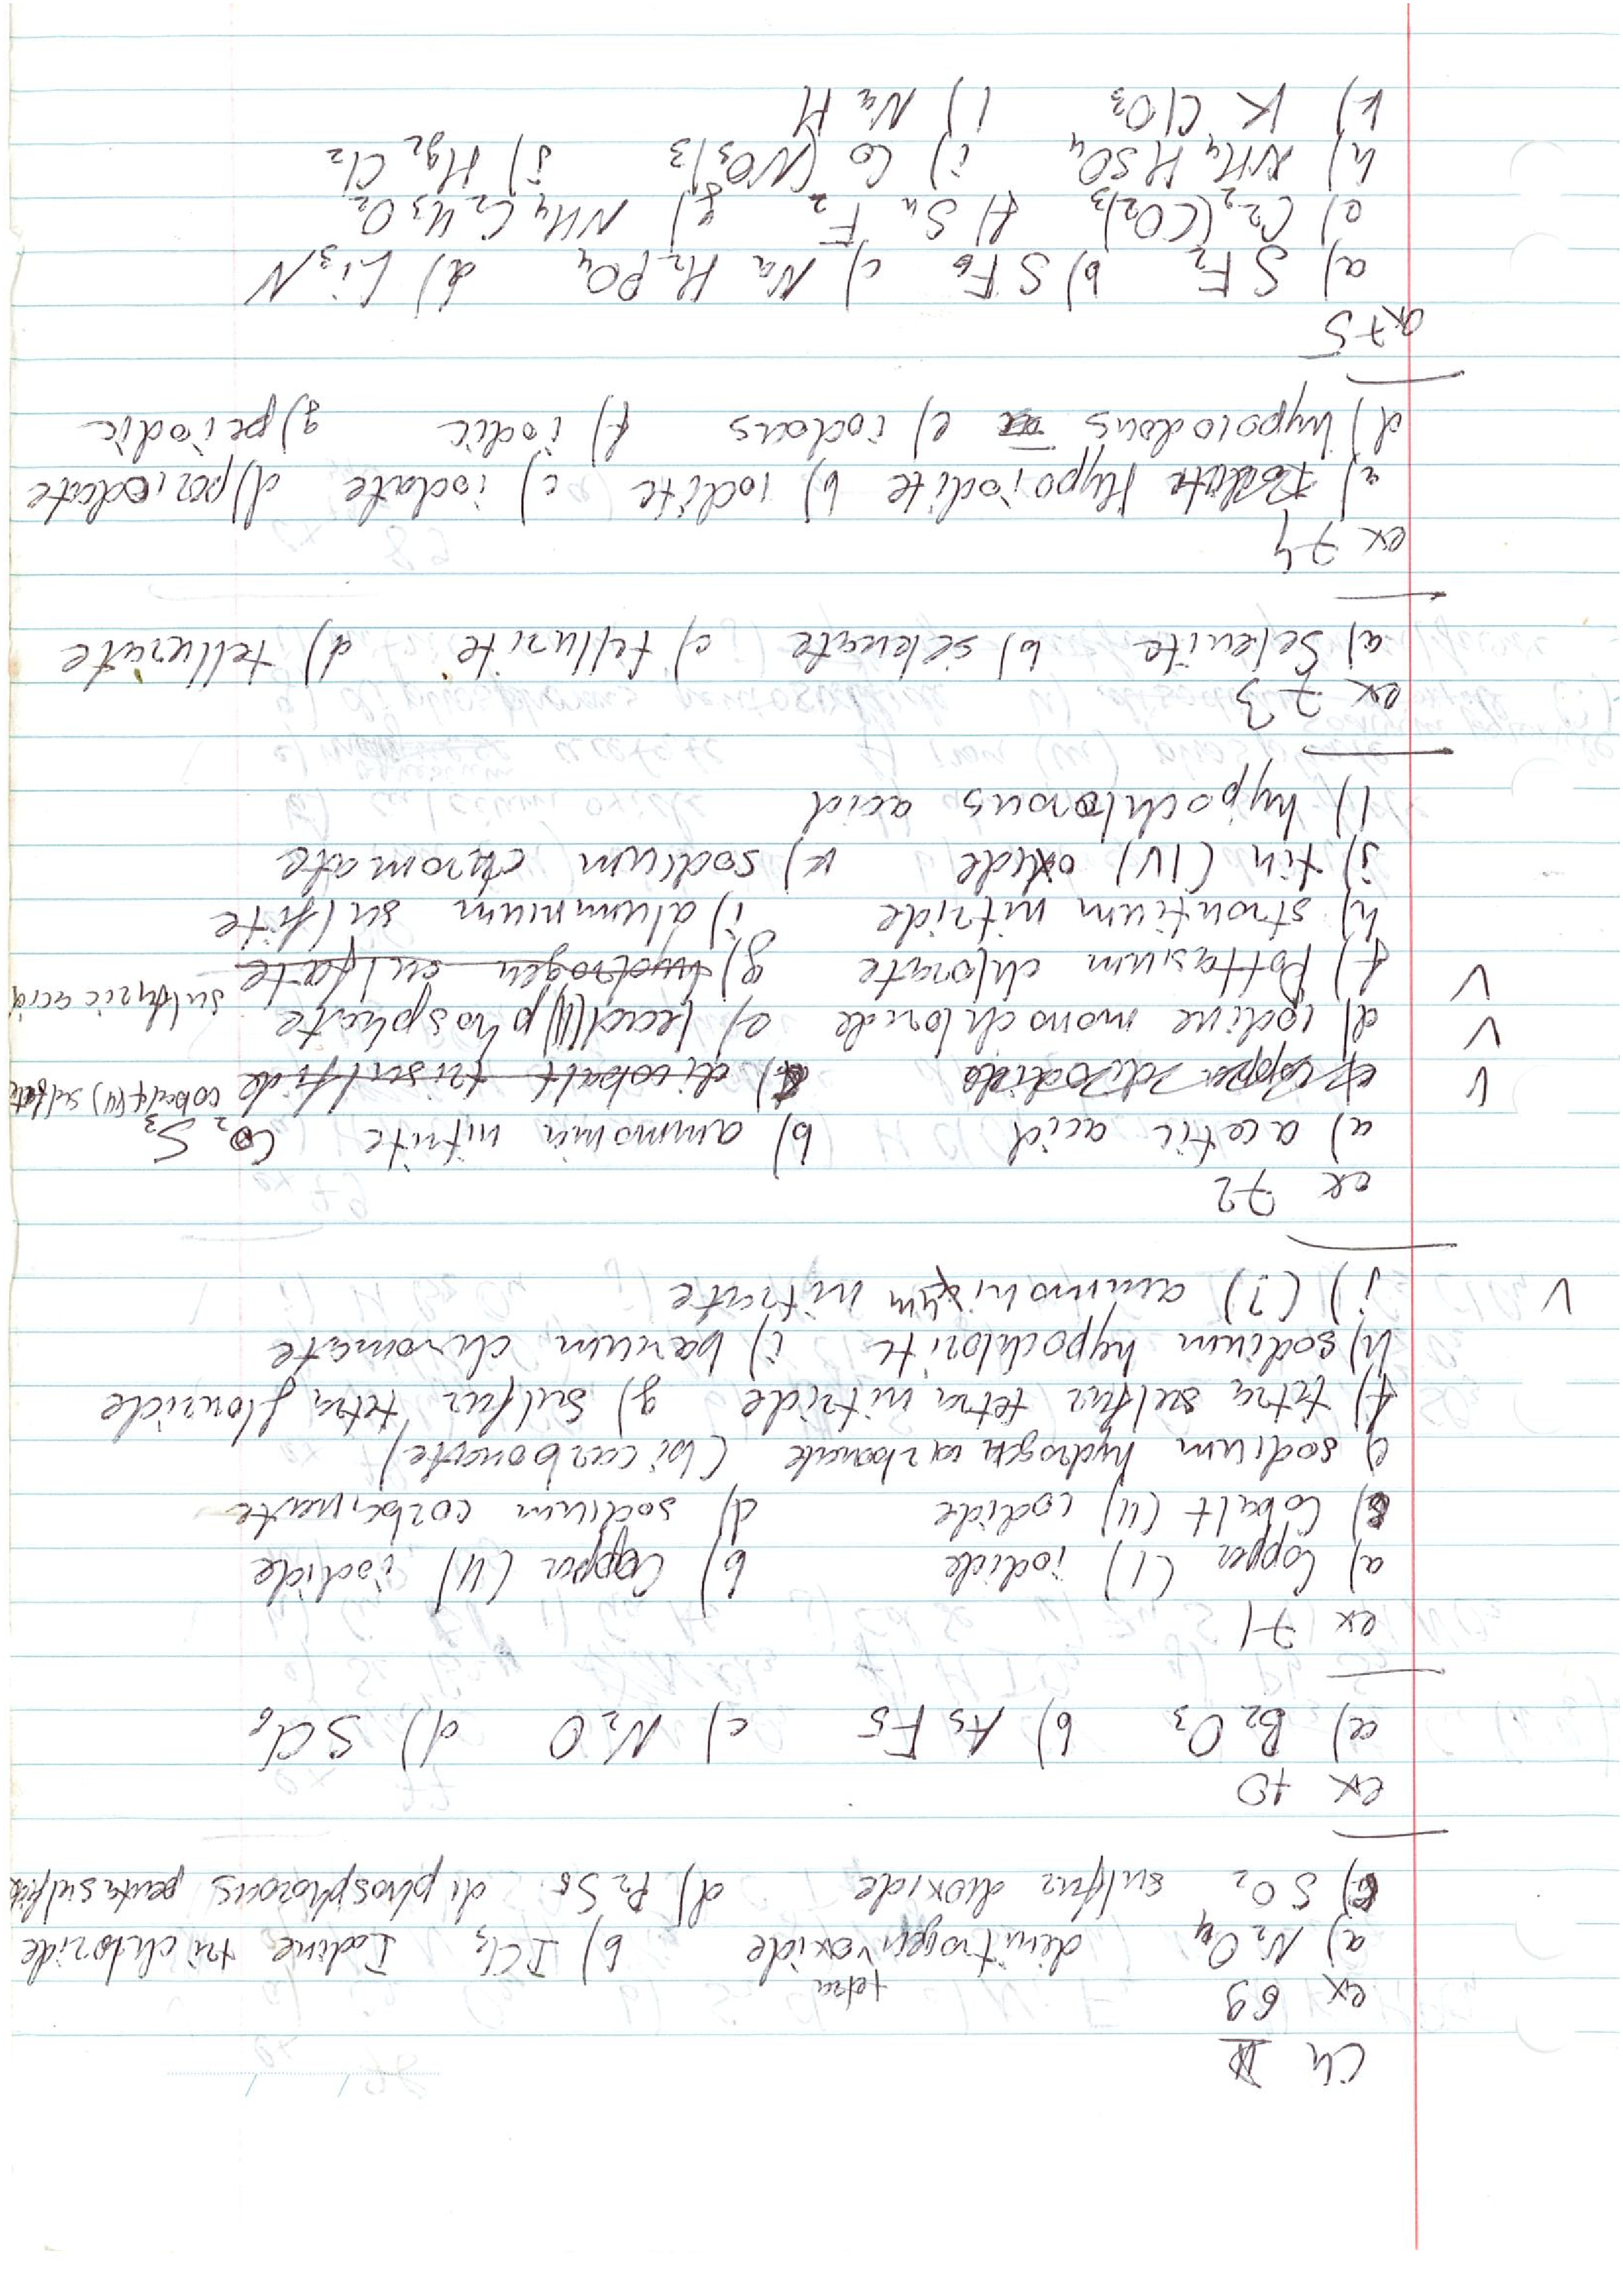 Ch II
ex 69
a) N2O4 dinitrogen tetra oxide b) ICl3 Iodine tri chloride
c) SO2 sulfur dioxide d) P2S5 di phosphorous penta sulfide
ex 70
a) B2O3 b) AsF5 c) N2O d) SCl6
ex 71
a) Copper (I) iodide b) Copper (II) iodide
c) Cobalt (II) iodide d) sodium carbonate
e) sodium hydrogen carbonate (bicarbonate)
f) tetra sulfur tetra nitride g) sulfur tetra flouride
h) sodium hypochlorite i) barium chromate
V j) (?) ammonium nitrate
ex 72
a) acetic acid b) ammonia nitrite Co2 S3
V c) copper diiodide dicobalt trisulfide cobalt (III) sulfide
V d) iodine monochloride e) lead(II) phosphate
V f) Pottasium chlorate g) hydrogen sulfate sulfuric acid
h) strontium nitride i) aluminium sulfite
j) tin (IV) oxide k) sodium chromate
l) hypochlorous acid
ex 73
a) Selenite b) selenate c) tellurite d) tellurate
ex 74
a) Hypoiodite b) iodite c) iodate d) periodate
d) hypoiodous e) iodous f) iodic g) periodic
ex 75
a) SF2 b) SF6 c) Na H2PO4 d) Li3N
e) Cr2(CO3)3 f) Sn F2 g) NH4C2H3O2
h) NH4 HSO4 i) Co (NO3)3 j) Hg2 Cl2
k) K ClO3 l) Na H